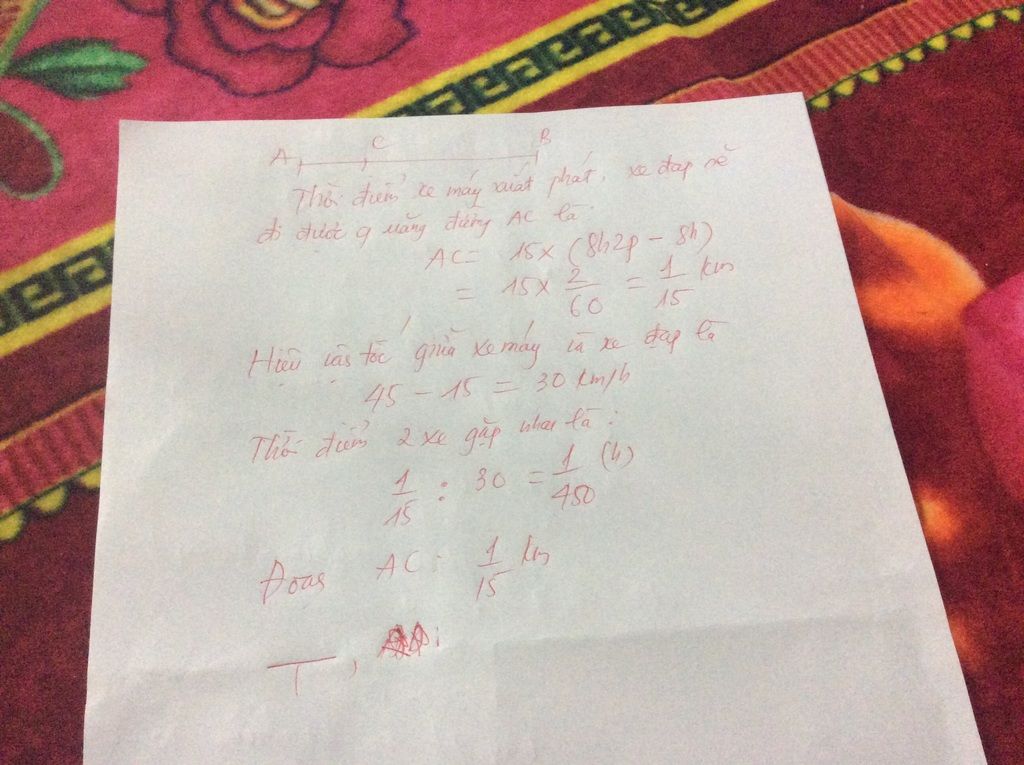 A C B
Thời điểm xe máy xuất phát, xe đạp sẽ
đi được quãng đường AC là:
AC = 15 x (8h2p - 8h)
= 15 x 2/60 = 1/15 km
Hiệu vận tốc giữa xe máy và xe đạp là
45 - 15 = 30 km/h
Thời điểm 2 xe gặp nhau là:
1/15 : 30 = 1/450 (h)
Đoạn AC = 1/15 km